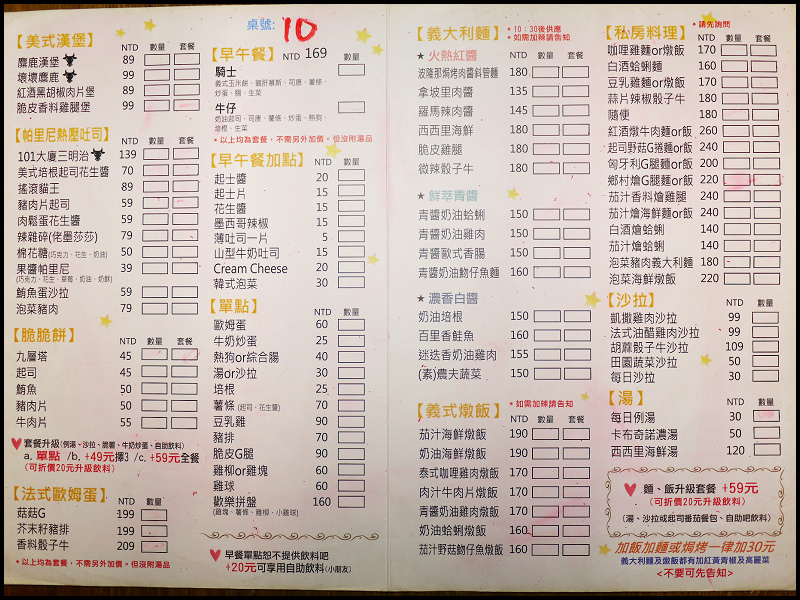 桌號: 10
【美式漢堡】
NTD 數量 套餐
麋鹿漢堡 89
壞壞麋鹿 99
紅酒黑胡椒肉片堡 89
脆皮香料雞腿堡 99
【帕里尼熱壓吐司】
NTD 數量 套餐
101大廈三明治 139
美式培根起司花生醬 70
搖滾貓王 89
豬肉片起司 59
肉鬆蛋花生醬 59
辣雜碎(佬墨莎莎) 79
棉花糖(巧克力、花生、奶油) 50
果醬帕里尼 39
(巧克力、花生、草莓、奶油、奶酥)
鮪魚蛋沙拉 59
泡菜豬肉 79
【脆脆餅】
NTD 數量 套餐
九層塔 45
起司 45
鮪魚 50
豬肉片 50
牛肉片 55
套餐升級(例湯。沙拉、脆薯、牛奶炒蛋。自助飲料)
a. 單點 /b. +49元擇3 /c. +59元全餐
(可折價20元升級飲料)
【法式歐姆蛋】
NTD 數量
菇菇G 199
芥末籽豬排 199
香料骰子牛 209
*以上均為套餐，不需另外加價。但沒附湯品
【早午餐】 NTD 169 數量
騎士
義式玉米餅、鵝肝慕斯、司康、薯條、
炒蛋、腸、生菜
牛仔
奶油起司、司康、薯條、炒蛋、熱狗、
培根、生菜
*以上均為套餐，不需另外加價。但沒附湯品
【早午餐加點】
NTD 數量
起士醬 20
起士片 15
花生醬 15
墨西哥辣椒 15
薄吐司一片 5
山型牛奶吐司 15
Cream Cheese 20
韓式泡菜 30
【單點】
NTD 數量
歐姆蛋 60
牛奶炒蛋 25
熱狗or綜合腸 40
湯or沙拉 30
培根 25
薯條(起司、花生醬) 70
豆乳雞 90
豬排 70
脆皮G腿 90
雞柳or雞塊 60
雞球 60
歡樂拼盤 160
(雞塊、薯條、雞柳、小雞球)
早餐單點恕不提供飲料吧
+20元可享用自助飲料(小朋友)
【義大利麵】
*10：30後供應
*如需加辣請告知
★火熱紅醬 NTD 數量 套餐
波隆那焗烤肉醬斜管麵 180
拿坡里肉醬 135
羅馬辣肉醬 145
西西里海鮮 180
脆皮雞腿 180
微辣骰子牛 180
★鮮萃青醬
青醬奶油蛤蜊 150
青醬奶油雞肉 150
青醬歐式香腸 150
青醬奶油魩仔魚麵 160
★濃香白醬
奶油培根 150
百里香鮭魚 160
迷迭香奶油雞肉 155
(素)農夫蔬菜 150
【義式燉飯】
*如需加辣請告知
NTD 數量 套餐
茄汁海鮮燉飯 190
奶油海鮮燉飯 190
泰式咖哩雞肉燉飯 170
肉汁牛肉片燉飯 170
青醬奶油雞肉燉飯 170
奶油蛤蜊燉飯 160
茄汁野菇魩仔魚燉飯 160
【私房料理】
*請先詢問
NTD 數量 套餐
咖哩雞麵or燉飯 170
白酒蛤蜊麵 160
豆乳雞麵or燉飯 170
蒜片辣椒骰子牛 180
隨便 180
紅酒燉牛肉麵or飯 260
起司野菇G捲麵or飯 240
匈牙利G腿麵or飯 200
鄉村燴G腿麵or飯 220
茄汁香料燴雞腿 240
茄汁燴海鮮麵or飯 240
白酒燴蛤蜊 140
茄汁燴蛤蜊 140
泡菜豬肉義大利麵 180
泡菜海鮮燉飯 220
【沙拉】
NTD 數量
凱撒雞肉沙拉 99
法式油醋雞肉沙拉 99
胡蔴骰子牛沙拉 109
田園蔬菜沙拉 50
每日沙拉 30
【湯】
NTD 數量
每日例湯 30
卡布奇諾濃湯 50
西西里海鮮湯 120
麵、飯升級套餐 +59元
(可折價20元升級飲料)
(湯、沙拉或起司番茄餐包、自助吧飲料)
加飯加麵或焗烤一律加30元
義大利麵及燉飯都有加紅黃青椒及高麗菜
<不要可先告知>